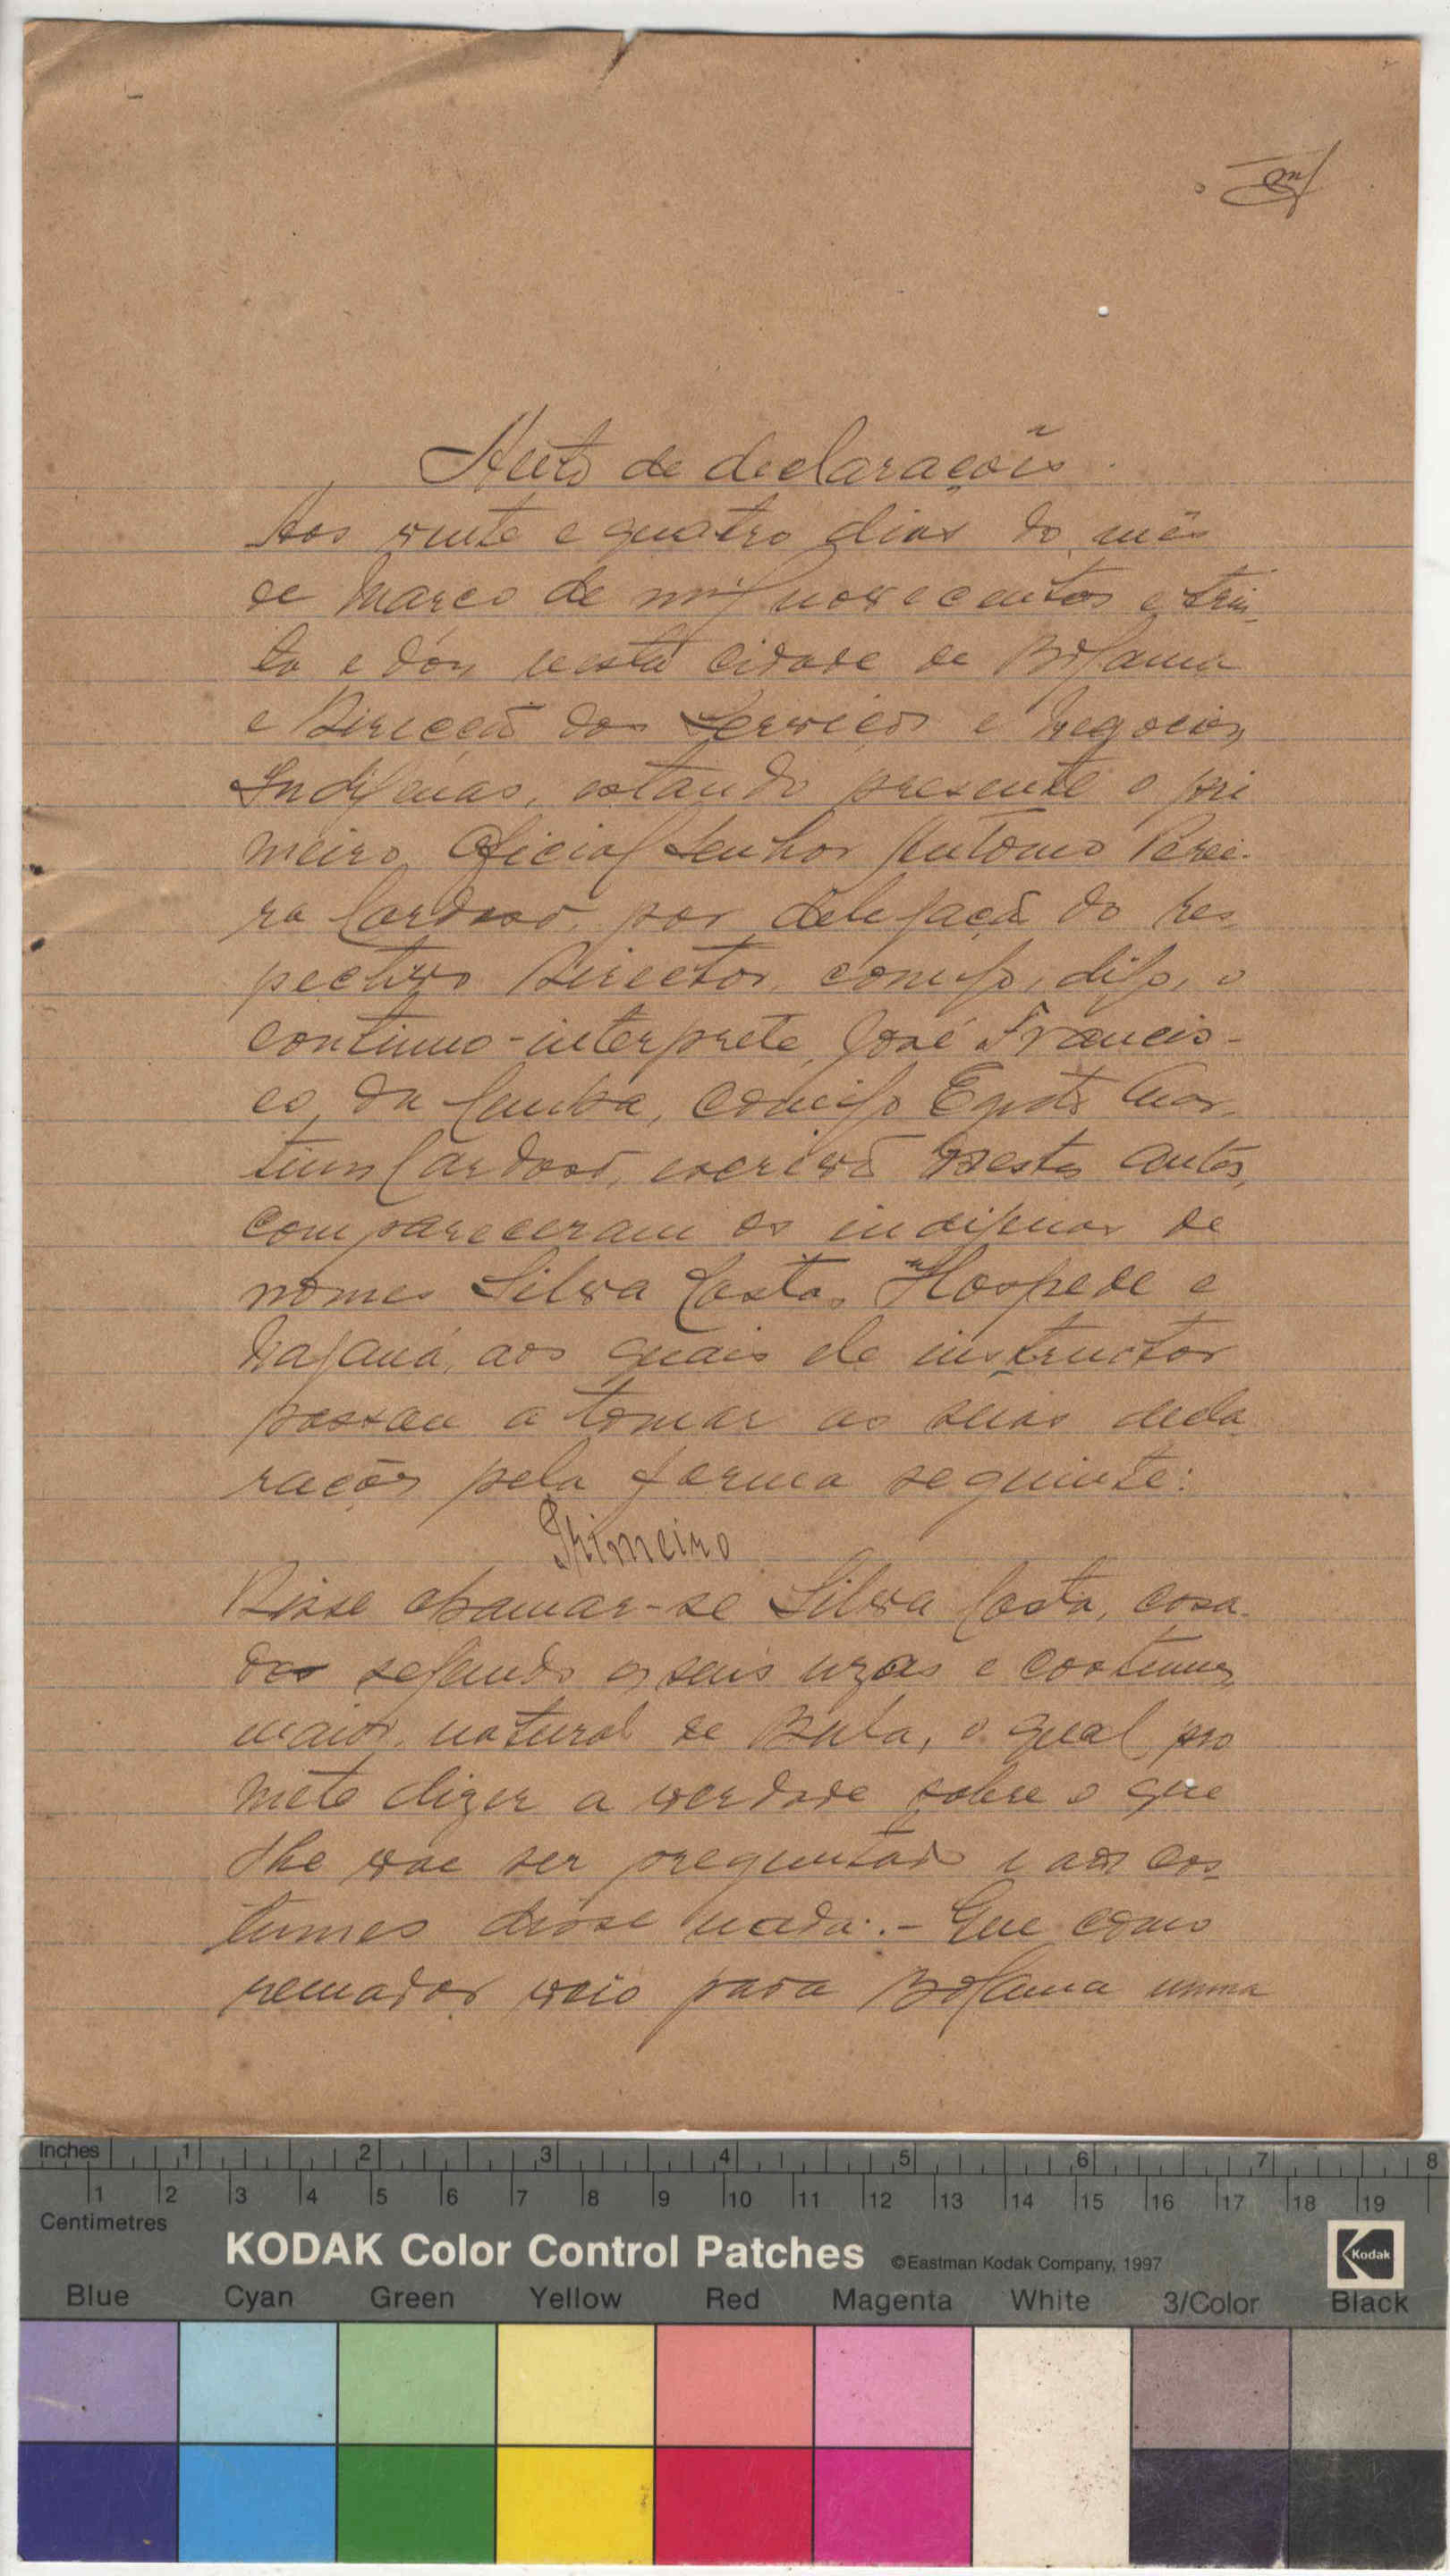 Auto de declarações.
Aos vinte e quatro dias do mês
de Março de mil novecentos e trin-
ta e dois nesta cidade de Bolama
e Direcçã dos Serviços e Negocios
Indigenas, estando presente o pri
meiro oficial Senhor Antonio Perei-
ra Cardoso, por delegaçã do res-
pectivo Director, comigo, digo, o
continuo-interprete, José Francis-
co da Cunha, comigo Mar-
tins Cardoso, escrivã destes autos,
compareceram os indigenas de
nomes Silva Costa, Hospede e
aos quais ele instructor
passou a tomar as suas decla
rações pela forma seguinte:
Primeiro
Disse chamar-se Silva Costa, casa-
do segundo os seus uzos e costumes,
maior, natural de Bula, o qual pro
mete dizer a verdade sobre o que
lhe vae ser preguntado e aos cos-
tumes disse nada.- Que como
remador veio para Bolama numa
Inches 1 2 3 4 5 6 7 8
1 2 3 4 5 6 7 8 9 10 11 12 13 14 15 16 17 18 19
Centimetres
KODAK Color Control Patches ©Eastman Kodak Company, 1997 Kodak
Blue Cyan Green Yellow Red Magenta White 3/Color Black